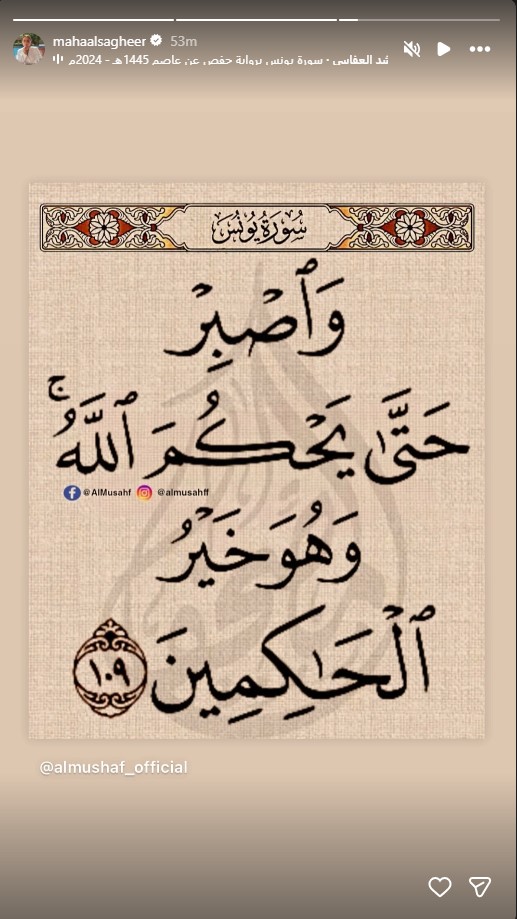 mahaalsagheer 53m
شد العفاسي · سورة يونس برواية حفص عن عاصم 1445هـ - 2024م
سُورَةُ يُونُسَ
وَٱصْبِرْ
حَتَّىٰ يَحْكُمَ ٱللَّهُۚ
@AlMusahf @almusahff
وَهُوَ خَيْرُ
ٱلْحَٰكِمِينَ ١٠٩
@almushaf_official